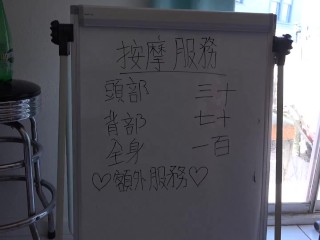 按摩服務
頭部 三十
背部 七十
全身 一百
♡額外服務♡